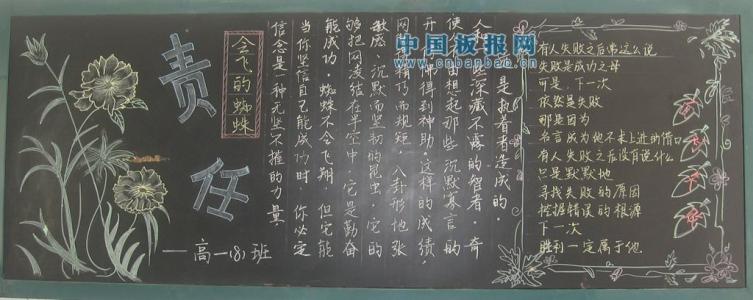 责任
会飞的蜘蛛
——高一(8)班
是执着者造成的。
人和 些深藏不露的智者。奇
使 由想起那些沉默寡言的
开 得到神助 这样的成绩，
网 精巧而规矩，八卦形地张
敏感、沉默而坚韧的昆虫，它的
够把网凌结在半空中 它是勤奋
能成功。蜘蛛不会飞翔 但它能
当你坚信自己能成功时 你必定
信念是一种无坚不摧的力量，
中国板报网
www.cnbanbao.cn
有人失败之后常这么说
失败是成功之母
可是，下一次
依然是失败
那是因为
名言成为他不求上进的借口
有人失败之后没有说什么
只是默默地
寻找失败的原因
挖掘错误的根源
下一次
胜利一定属于他